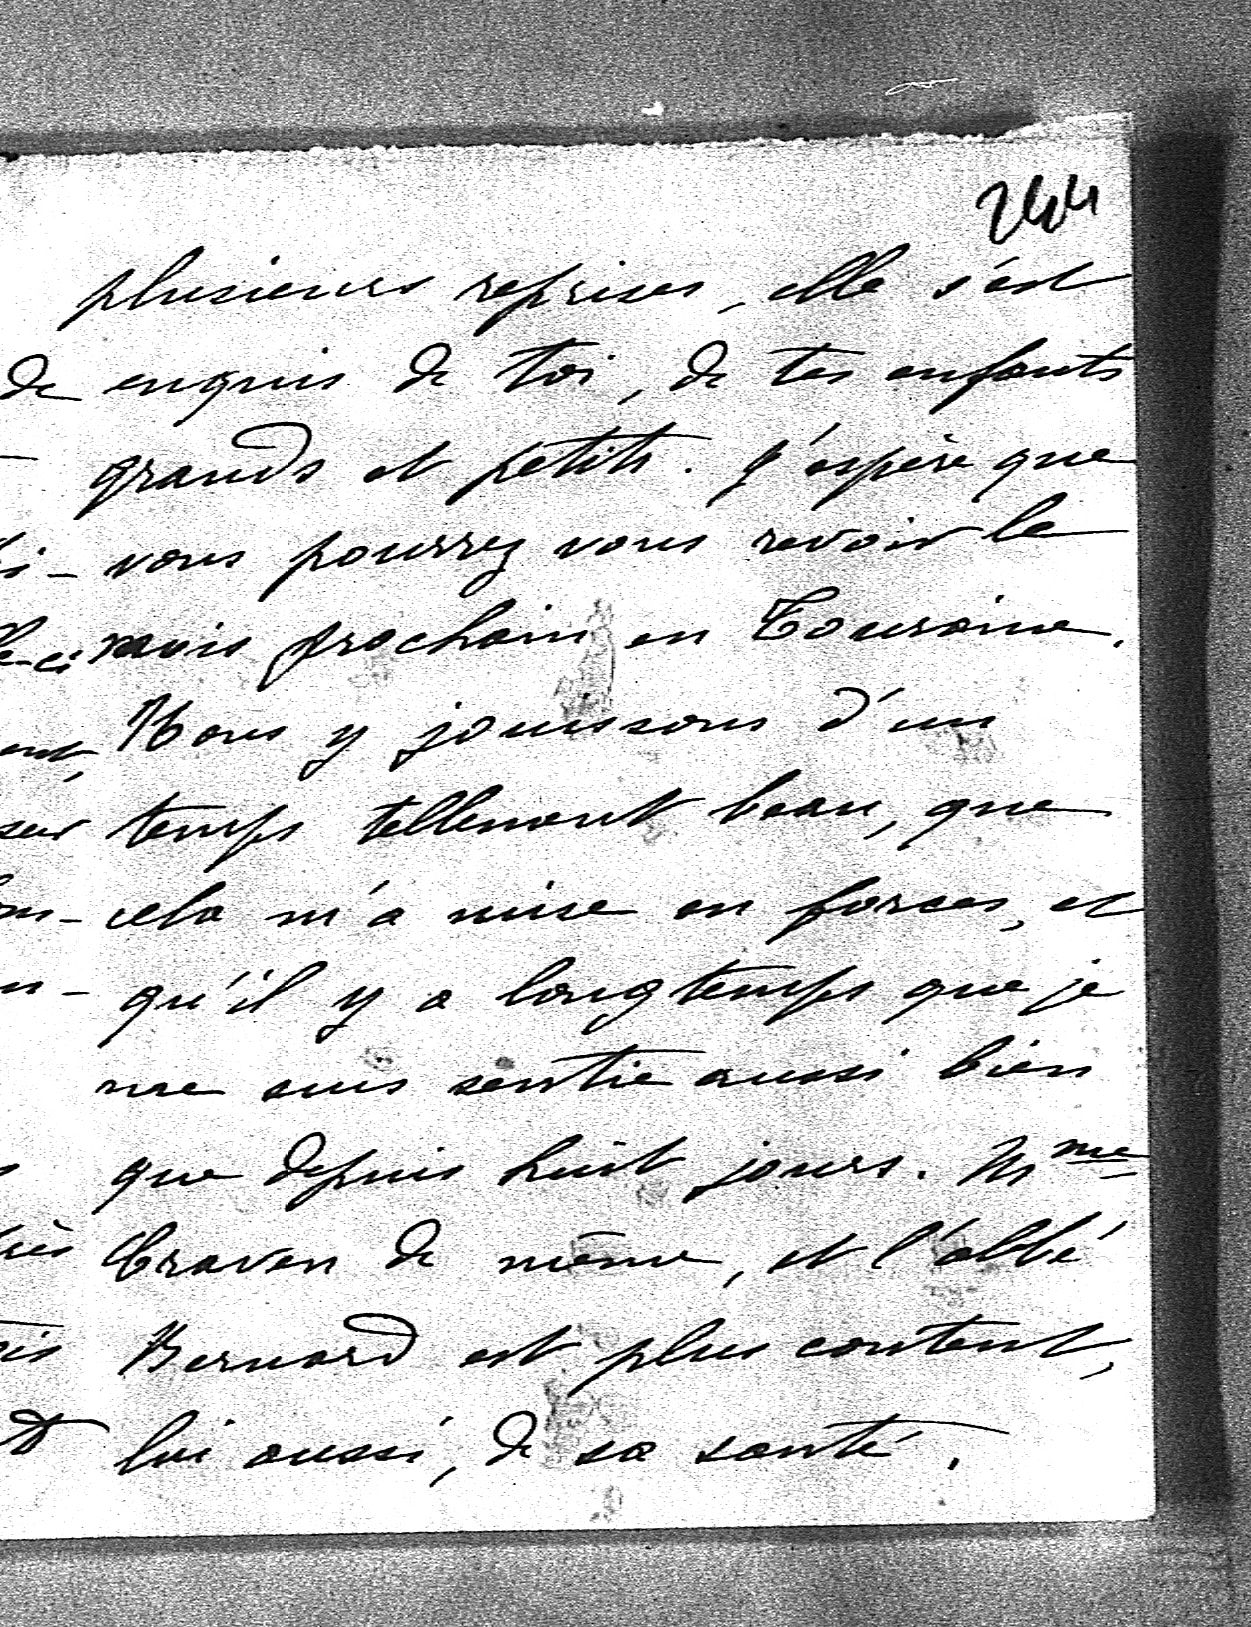 244
plusieurs reprises, elle s'est
de enquis de toi, de tes enfants
grands et petits. J'espère que
vous pourrez vous revoir le
mois prochain en Touraine.
Nous y jouissons d'un
temps tellement beau, que
cela m'a mise en forces, et
qu'il y a longtemps que je
me suis sentie aussi bien
que depuis huit jours. Mme
Craven de même, et l'abbé
Bernard est plus content,
lui aussi, de sa santé.